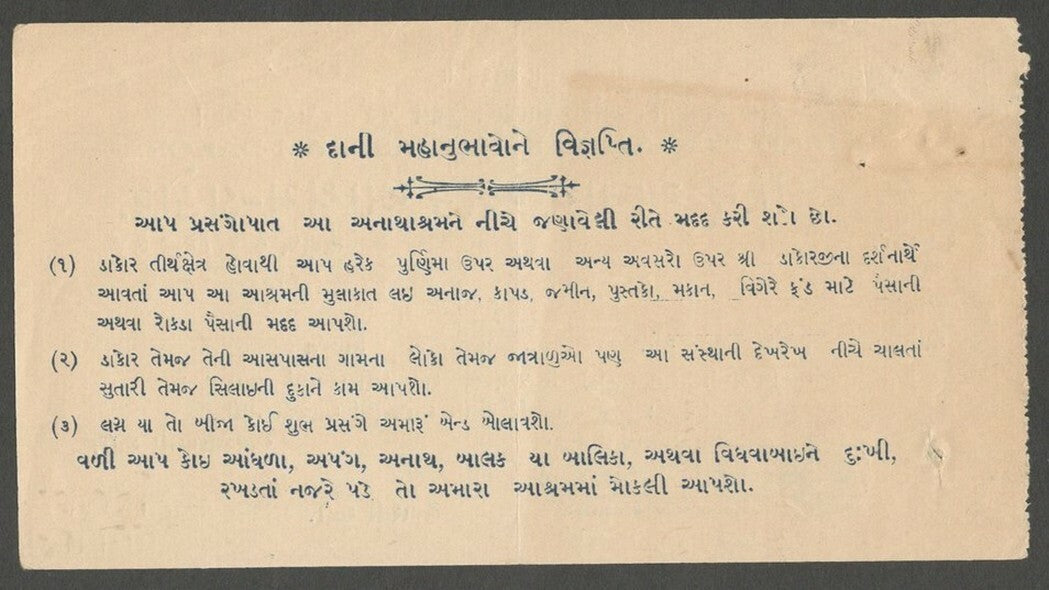 * દાની મહાનુભાવોને વિજ્ઞપ્તિ. *
આપ પ્રસંગોપાત આ અનાથાશ્રમને નીચે જણાવેલી રીતે મદદ કરી શકો છો.
(૧) ડાકોર તીર્થક્ષેત્ર હોવાથી આપ હરેક પુર્ણિમા ઉપર અથવા અન્ય અવસરો ઉપર શ્રી ડાકોરજીના દર્શનાર્થે
આવતાં આપ આ આશ્રમની મુલાકાત લઇ અનાજ, કાપડ, જમીન, પુસ્તકો, મકાન, વિગેરે ફંડ માટે પૈસાની
અથવા રોકડા પૈસાની મદદ આપશો.
(૨) ડાકોર તેમજ તેની આસપાસના ગામના લોકો તેમજ જાત્રાળુઓ પણ આ સંસ્થાની દેખરેખ નીચે ચાલતાં
સુતારી તેમજ સિલાઇની દુકાને કામ આપશો.
(૩) લગ્ન યા તો બીજા કોઈ શુભ પ્રસંગે અમારૂં બેન્ડ બોલાવશો.
વળી આપ કોઇ આંધળા, અપંગ, અનાથ, બાલક યા બાલિકા, અથવા વિધવાબાઇને દુઃખી,
રખડતાં નજરે પડે તો અમારા આશ્રમમાં મોકલી આપશો.